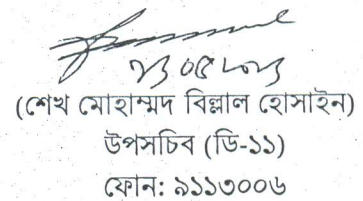 (শেখ মোহাম্মদ বিল্লাল হোসাইন)
উপসচিব (ডি-১১)
ফোন: ৯১১৩০০৬